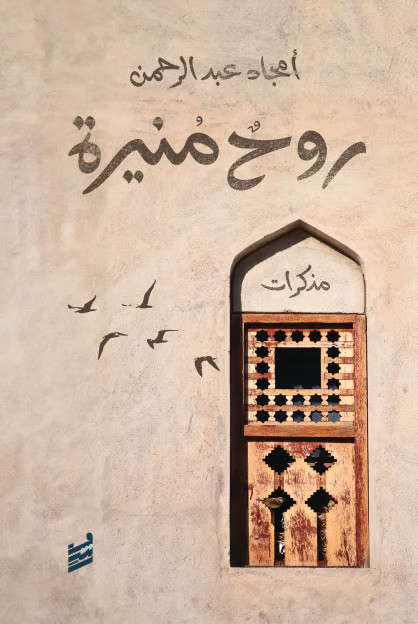 أمجاد عبد الرحمن
روحٌ مُنيرة
مذكرات